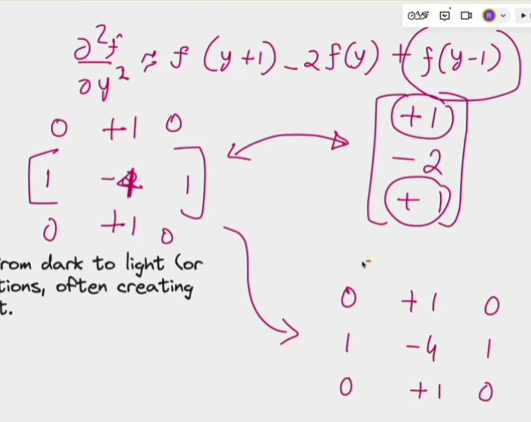 ∂²f/∂y² ≈ f(y+1) - 2f(y) + f(y-1)
0 +1 0
[1 -4 1]
0 +1 0
[+1
-2
+1]
rom dark to light (or
tions, often creating
t.
0 +1 0
1 -4 1
0 +1 0